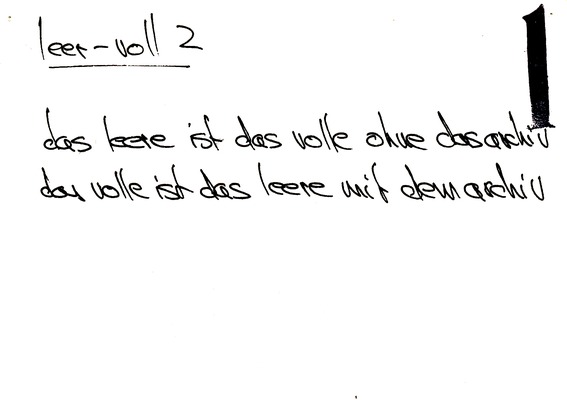 leer-voll 2
das leere ist das volle ohne das archiv
das volle ist das leere mit dem archiv